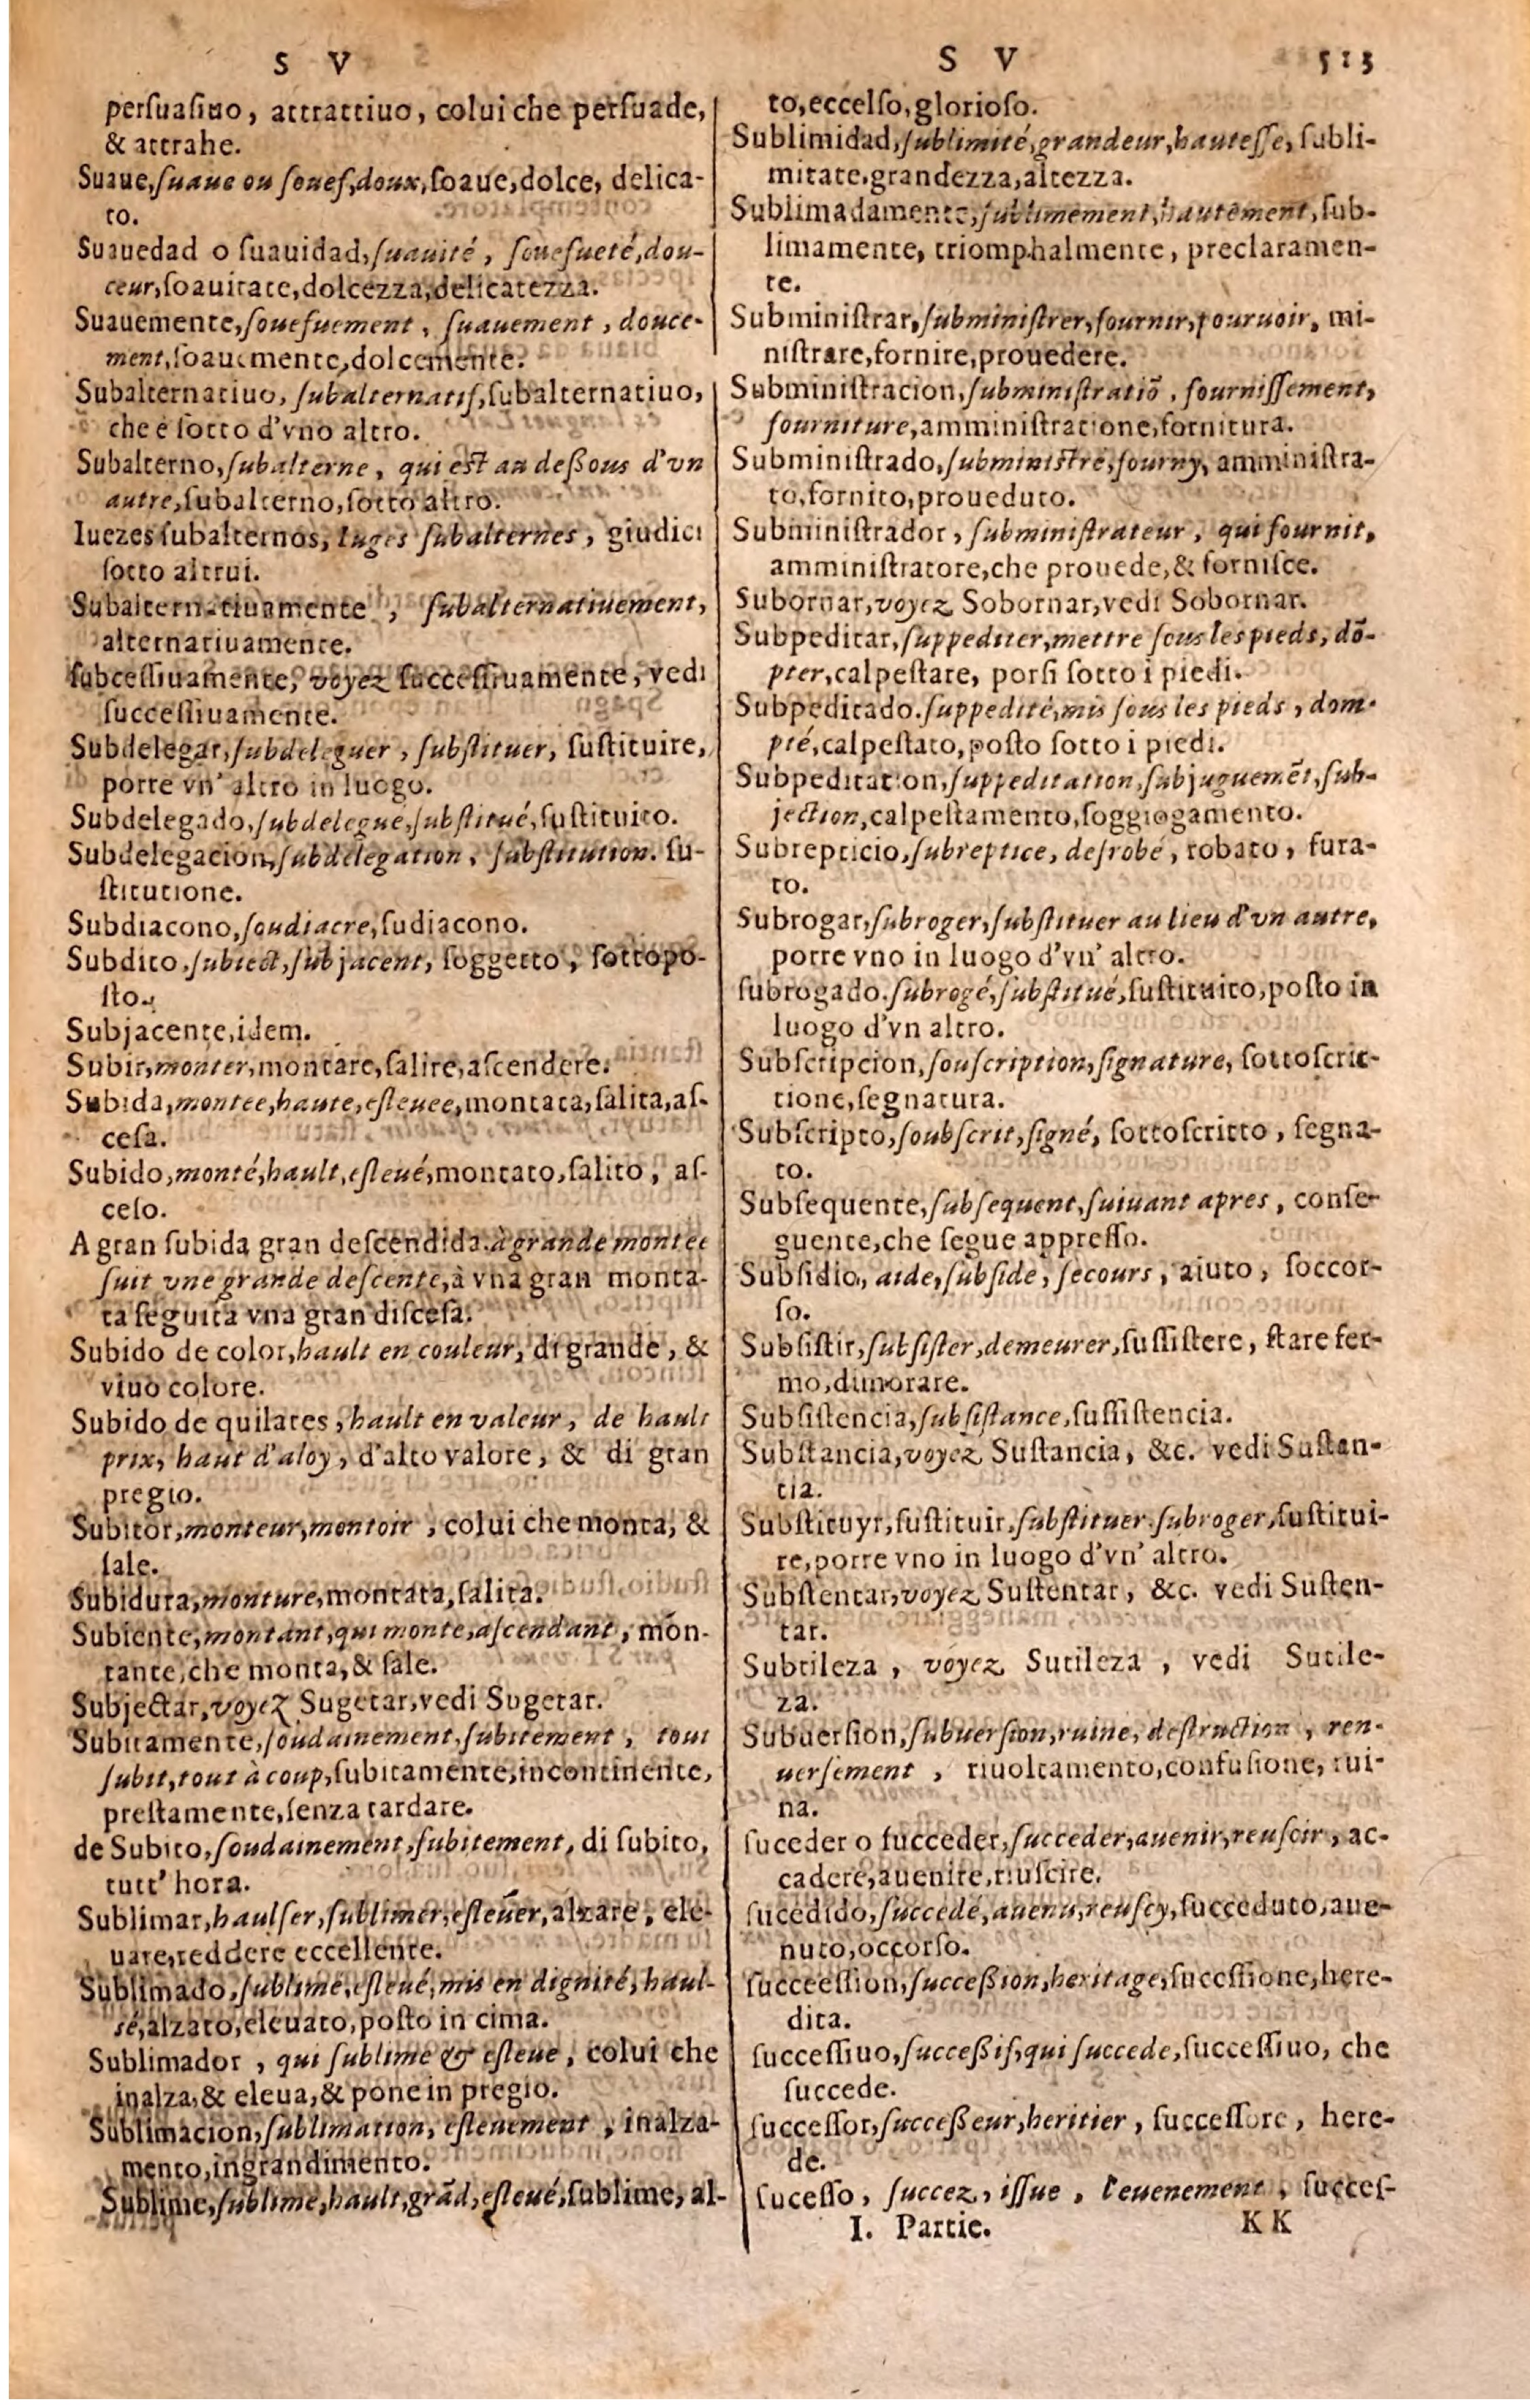 S V
persuasiuo, attrattiuo, colui che persuade,
& attrahe.
Suaue,suaue ou souef,doux,soaue,dolce, delica-
to.
Suauedad o suauidad,suauité, souefueté,dou-
ceur,soauitate,dolcezza,delicatezza.
Suauemente,souefuement, suauement, douce-
ment,soauemente,dolcemente.
Subalternatiuo, subalternatif,subalternatiuo,
che é sotto d'vno altro.
Subalterno,subalterne, qui est au deßous d'vn
autre,subalterno,sotto altro.
Iuezes subalternos, Iuges subalternes, giudici
sotto altrui.
Subalternatiuamente, subalternatiuement,
alternatiuamente.
subcessiuamente, voyez successiuamente, vedi
successiuamente.
Subdelegar,subdeleguer, substituer, sustituire,
porre vn' altro in luogo.
Subdelegado,subdelegué,substitué,sustituito.
Subdelegacion,subdelegation, substitution. su-
stitutione.
Subdiacono,soudiacre,sudiacono.
Subdito,subiect,subjacent, soggetto, sottopo-
sto.
Subjacente,idem.
Subir,monter,montare,salire,ascendere.
Subida,montee,haute,esleuee,montata,salita,as-
cesa.
Subido,monté,hault,esleué,montato,salito, as-
ceso.
A gran subida gran descendida.à grande montee
suit vne grande descente,à vna gran monta-
ta seguita vna gran discesa.
Subido de color,hault en couleur, di grande, &
viuo colore.
Subido de quilates, hault en valeur, de hault
prix, haut d'aloy, d'alto valore, & di gran
pregio.
Subitor,monteur,montoir, colui che monta, &
sale.
Subidura,monture,montata,salita.
Subiente,montant,qui monte,ascendant, mon-
tante,che monta,& sale.
Subjectar,voyez Sugetar,vedi Sugetar.
Subitamente,soudainement,subitement, tout
subit,tout à coup,subitamente,incontinente,
prestamente,senza tardare.
de Subito,soudainement,subitement, di subito,
tutt' hora.
Sublimar,haulser,sublimer,esleuer,alzare, ele-
uare,reddere eccellente.
Sublimado,sublimé,esleué,mis en dignité,haul-
sé,alzato,eleuato,posto in cima.
Sublimador, qui sublime & esleue, colui che
inalza,& eleua,& pone in pregio.
Sublimacion,sublimation, esleuement, inalza-
mento,ingrandimento.
Sublime,sublime,hault,grãd,esleué,sublime, al-
S V 513
to,eccelso,glorioso.
Sublimidad,sublimité,grandeur,hautesse, subli-
mitate,grandezza,altezza.
Sublimadamente,sublimement,hautement,sub-
limamente, triomphalmente, preclaramen-
te.
Subministrar,subministrer,fournir,pouruoir, mi-
nistrare,fornire,prouedere.
Subministracion,subministratiõ, fournissement,
fourniture,amministratione,fornitura.
Subministrado,subministré,fourny, amministra-
to,fornito,proueduto.
Subministrador, subministrateur, qui fournit,
amministratore,che prouede,& fornisce.
Subornar,voyez Sobornar,vedi Sobornar.
Subpeditar,suppediter,mettre sous les pieds, dõ-
pter,calpestare, porsi sotto i piedi.
Subpeditado.suppedité,mis sous les pieds, dom-
pté,calpestato,posto sotto i piedi.
Subpeditacion,suppeditation,subjuguemẽt,sub-
jection,calpestamento,soggiogamento.
Subrepticio,subreptice, desrobé, robato, fura-
to.
Subrogar,subroger,substituer au lieu d'vn autre,
porre vno in luogo d'vn' altro.
subrogado.subrogé,substitué,sustituito,posto in
luogo d'vn altro.
Subscripcion,souscription,signature, sottoscrit-
tione,segnatura.
Subscripto,soubscrit,signé, sottoscritto, segna-
to.
Subsequente,subsequent,suiuant apres, conse-
guente,che segue appresso.
Subsidio, aide,subside, secours, aiuto, soccor-
so.
Subsistir,subsister,demeurer,sussistere, stare fer-
mo,dimorare.
Subsistencia,subsistance,sussistencia.
Substancia,voyez Sustancia, &c. vedi Sustan-
tia.
Substituyr,sustituir,substituer.subroger,sustitui-
re,porre vno in luogo d'vn' altro.
Substentar,voyez Sustentar, &c. vedi Susten-
tar.
Subtileza, voyez Sutileza, vedi Sutile-
za.
Subuersion,subuersion,ruine, destruction, ren-
uersement, riuoltamento,confusione, rui-
na.
suceder o succeder,succeder,auenir,reuscir, ac-
cadere,auenire,riuscire.
sucedido,succedé,auenu,reuscy,succeduto,aue-
nuto,occorso.
succeession,succeßion,heritage,successione,here-
dita.
successiuo,succeßif,qui succede,successiuo, che
succede.
successor,succeßeur,heritier, successore, here-
de.
sucesso, succez, issue, l'euenement, succes-
I. Partie. KK